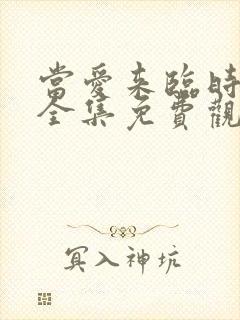 當愛来臨時
全集免費觀
冥入神坑